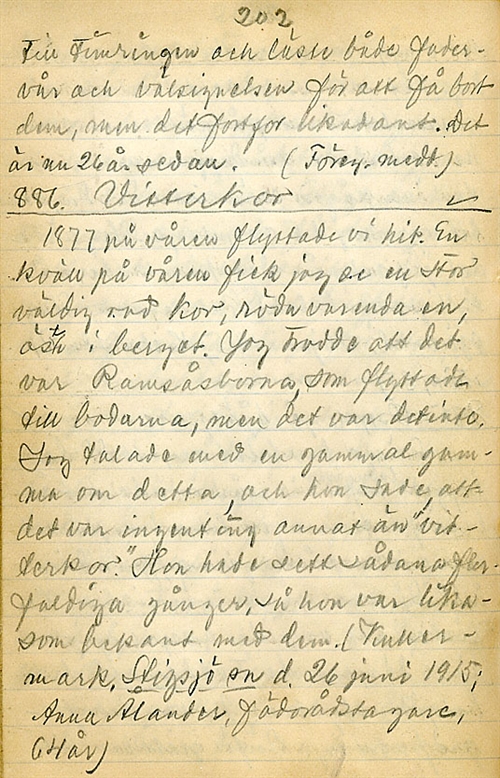 202
till timringen och läste både fader-
vår och välsignelsen för att få bort
dem, men det fortfor likadant. Det
är nu 26 år sedan. (Föreg. medd.)
886. Vitterkor
1877 på våren flyttade vi hit. En
kväll på våren fick jag se en stor
väldig rad kor, röda varenda en,
öst i berget. Jag trodde att det
var Ramsåsborna, som flyttade
till bodarna, men det var det inte.
Jag talade med en gammal gum-
ma om detta, och hon sade, att
det var ingenting annat än "vit-
terkor." Hon hade sett sådana fler-
faldiga gånger, så hon var lika-
som bekant med dem. (
mark, Stigsjö sn d. 26 juni 1915;
Anna Ålander, födorådstagare,
64 år)